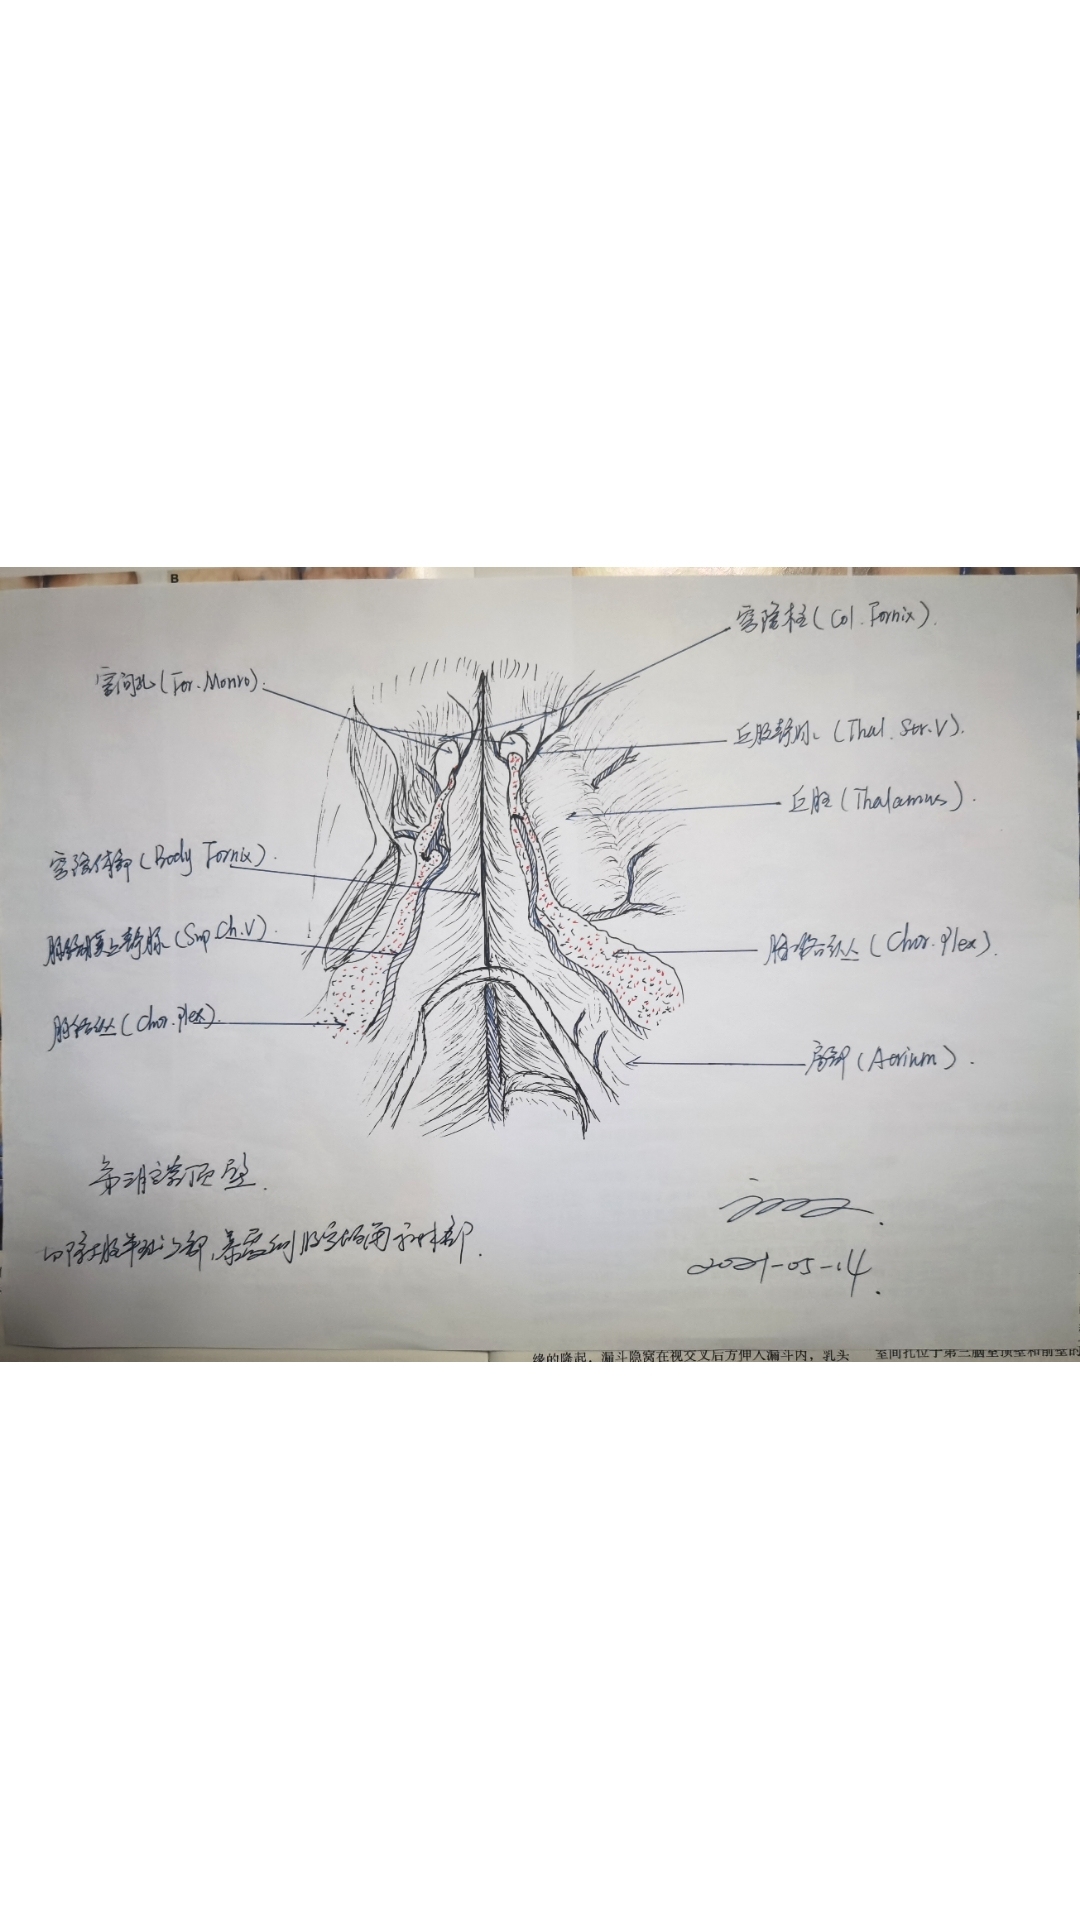 B
穹隆柱(Col.Fornix).
室间孔(For.Monro).
丘脑静脉(Thal.Str.V).
丘脑(Thalamus).
穹隆体部(Body Fornix).
脉络膜上静脉(Sup.Ch.V).
脉络丛(Chor.Plex).
脉络丛(Chor.Plex).
房部(Atrium).
第三脑室顶壁.
切除大脑半球上部,暴露侧脑室额角和体部.
2021-05-14.
缘的隆起，漏斗隐窝在视交叉后方伸入漏斗内，乳头
室间孔位于第三脑室顶壁和前壁的